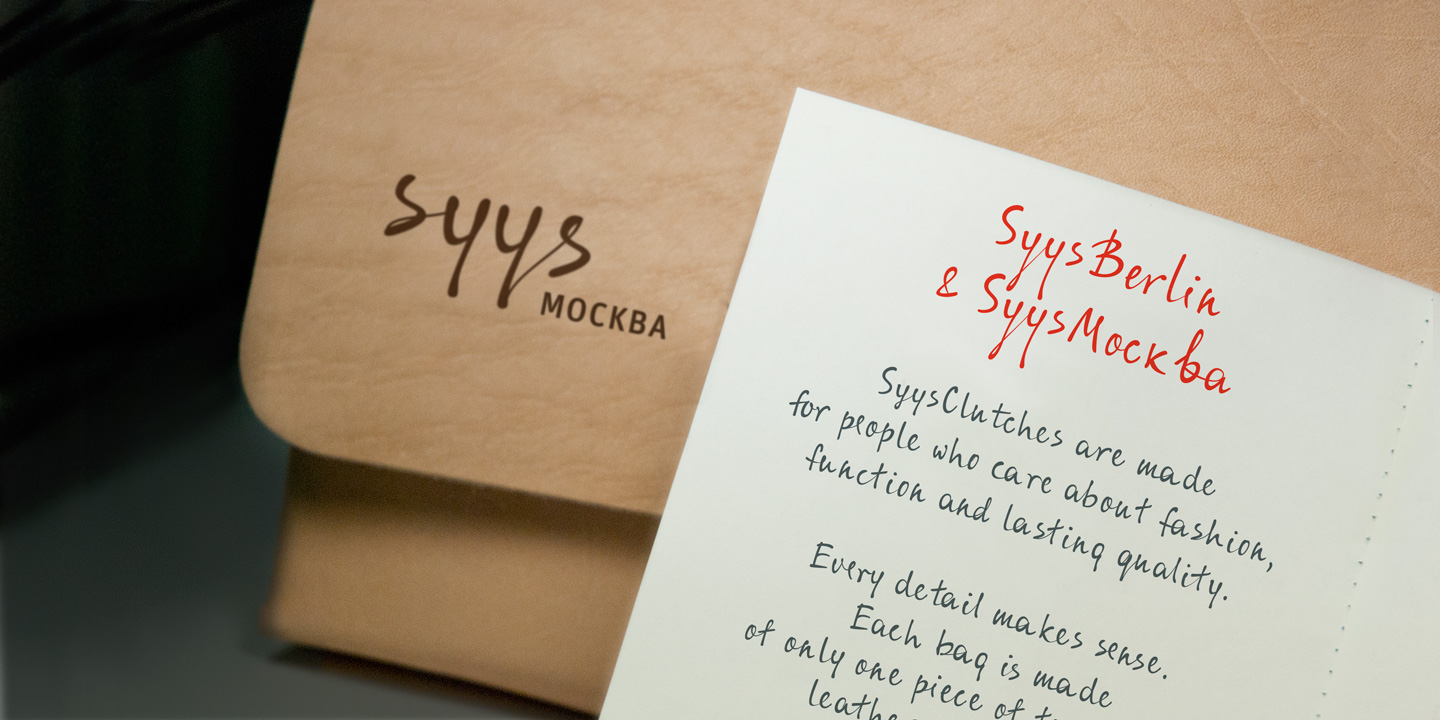 syys
МОСКВА
SyysBerlin
& SyysMockba
SyysClutches are made
for people who care about fashion,
function and lasting quality.
Every detail makes sense.
Each bag is made
of only one piece of